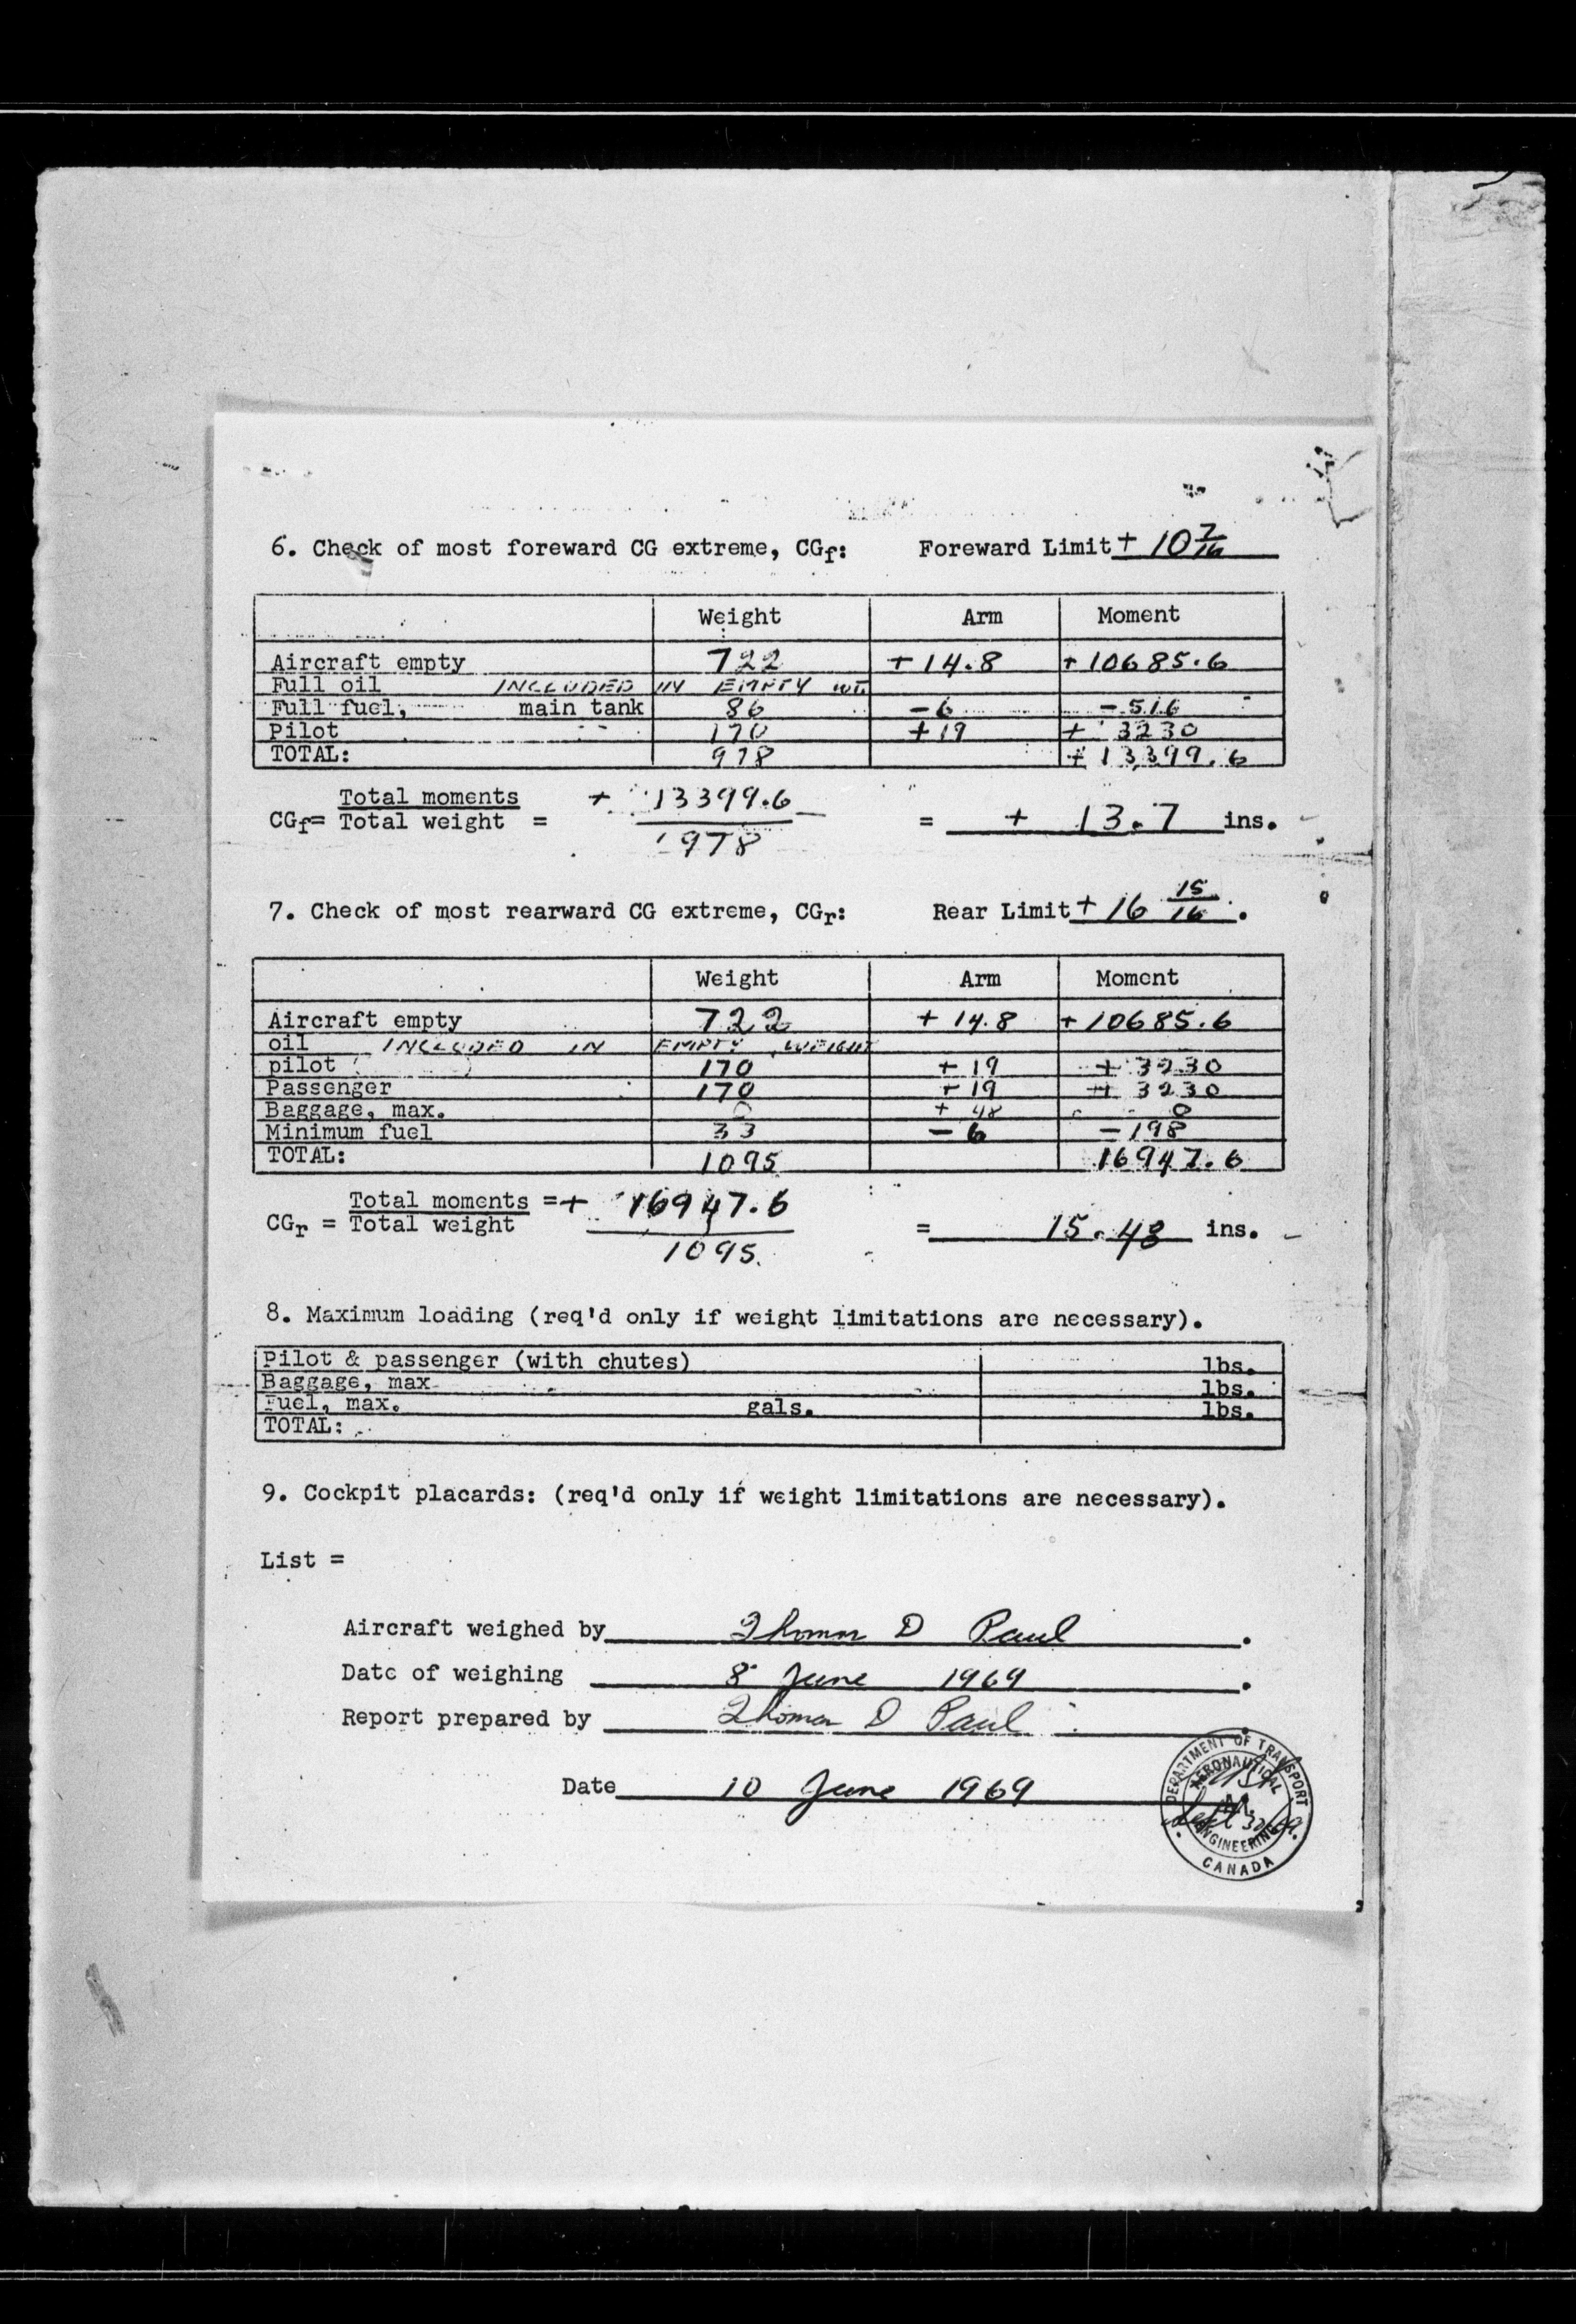 6. Check of most foreward CG extreme, CGf: Foreward Limit + 10 7/16
Weight Arm Moment
Aircraft empty 722 + 14.8 + 10685.6
Full oil INCLUDED IN EMPTY WT.
Full fuel, main tank 86 - 6 - 516
Pilot 170 + 19 + 3230
TOTAL: 978 + 13399.6
Total moments + 13399.6
CGf= Total weight = 978 = + 13.7 ins.
7. Check of most rearward CG extreme, CGr: Rear Limit + 16 15/16.
Weight Arm Moment
Aircraft empty 722 + 14.8 + 10685.6
oil INCLUDED IN EMPTY WEIGHT
pilot 170 + 19 + 3230
Passenger 170 + 19 + 3230
Baggage, max. 0 + 48 0
Minimum fuel 33 - 6 - 198
TOTAL: 1095 16947.6
Total moments =+ 16947.6
CGr = Total weight 1095. = 15.48 ins.
8. Maximum loading (req'd only if weight limitations are necessary).
Pilot & passenger (with chutes) lbs.
Baggage, max lbs.
Fuel, max. gals. lbs.
TOTAL:
9. Cockpit placards: (req'd only if weight limitations are necessary).
List =
Aircraft weighed by Thomas D Paul.
Date of weighing 8 June 1969.
Report prepared by Thomas D Paul.
Date 10 June 1969
DEPARTMENT OF TRANSPORT
AERONAUTICAL
ENGINEERING
CANADA